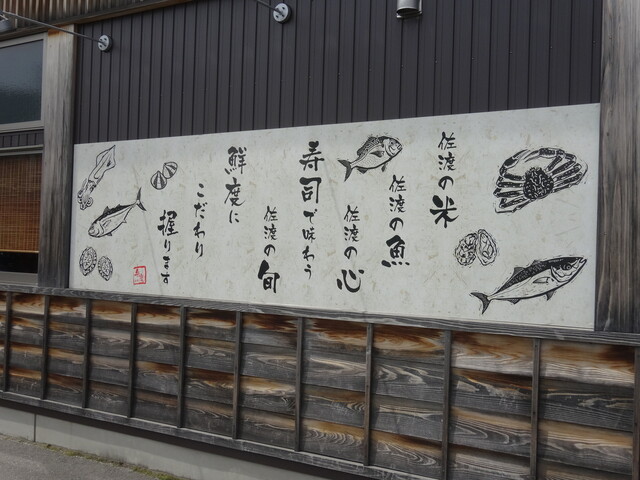 佐渡の米
佐渡の魚
佐渡の心
寿司で味わう
佐渡の旬
鮮度に
こだわり
握ります